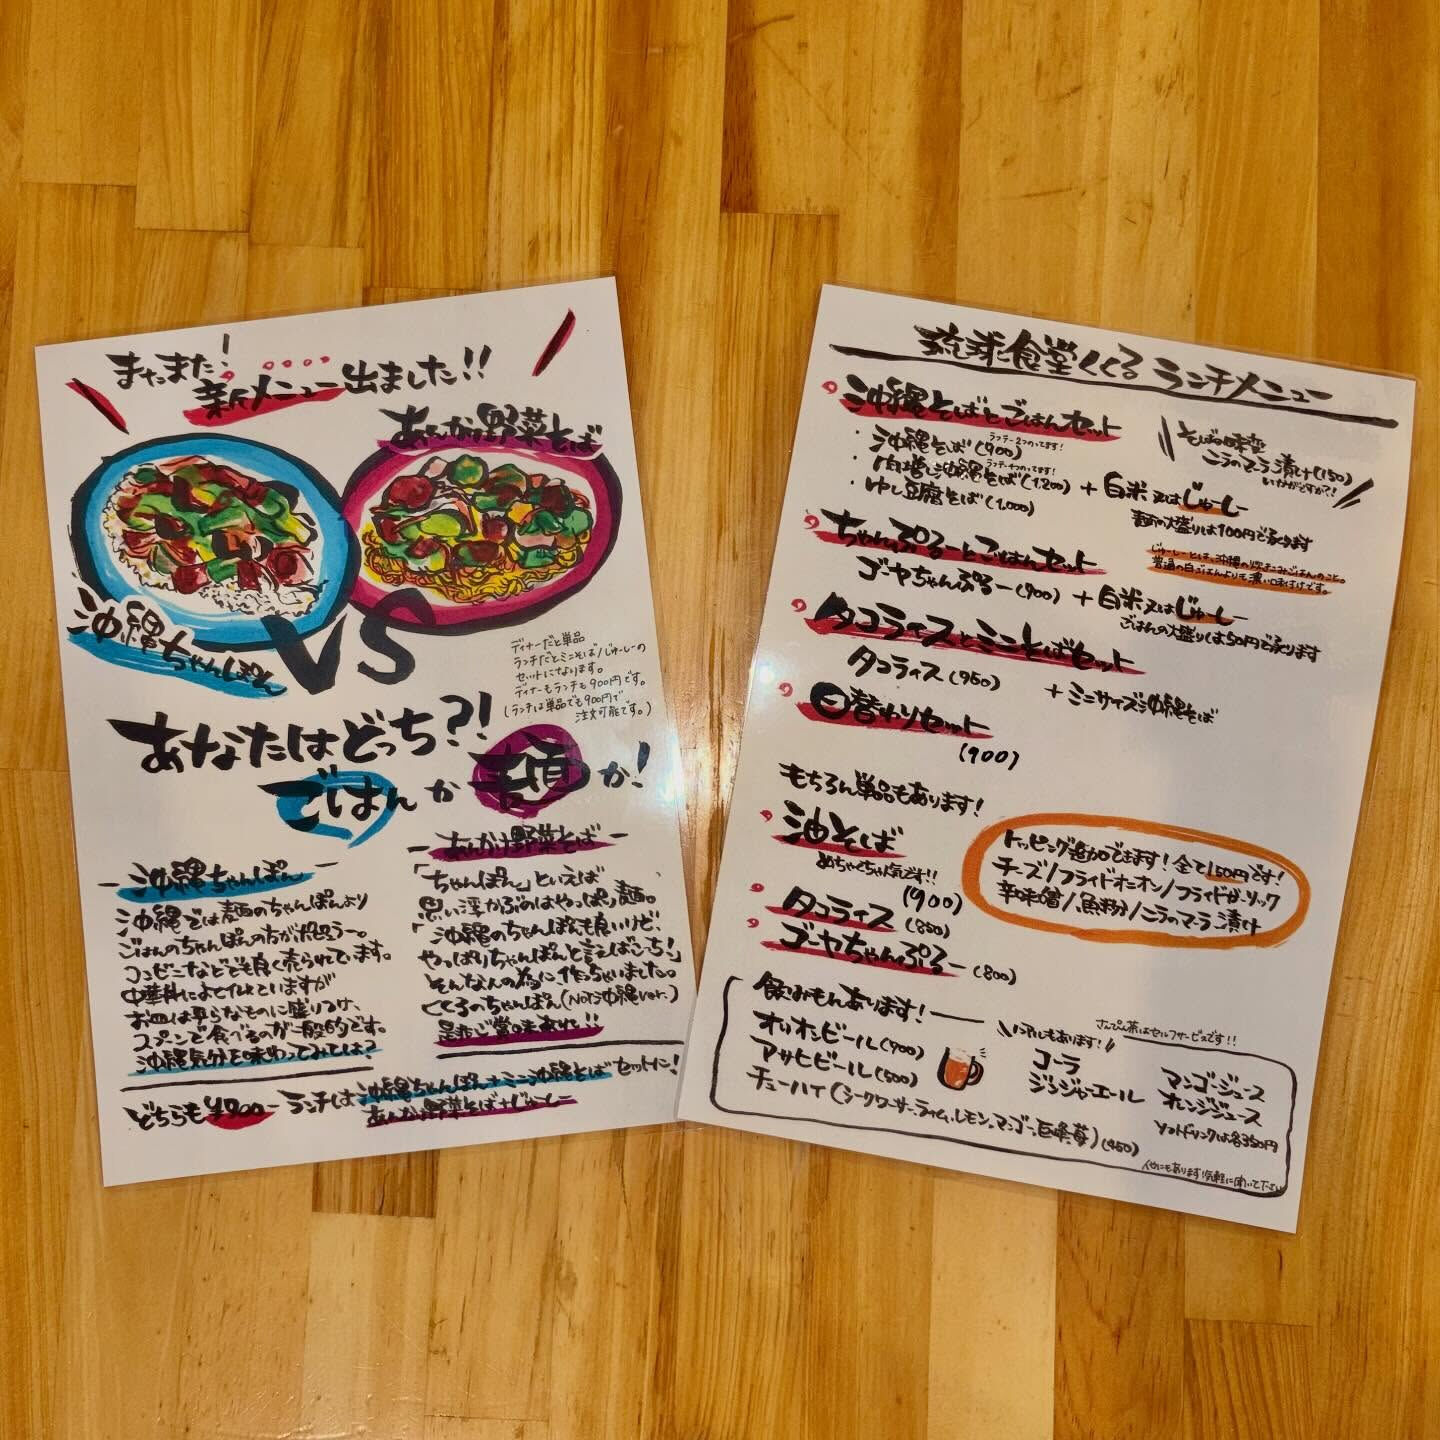 またまた!
新メニュー出ました!!
あんかけ野菜そば
沖縄ちゃんぽん
VS
ディナーだと単品
ランチだとミニそば/じゅーしーの
セットになります。
ディナーもランチも900円です。
(ランチは単品でも900円で
注文可能です。)
あなたはどっち?!
ごはんか麺か!
- 沖縄ちゃんぽん -
沖縄では麺のちゃんぽんより
ごはんのちゃんぽんの方がポピュラー。
コンビニなどでも良く売られています。
中華丼によく似ていますが
お皿は平らなものに盛りつけ、
スプーンで食べるのが一般的です。
沖縄気分を味わってみては?
- あんかけ野菜そば -
「ちゃんぽん」といえば
思い浮かぶのはやっぱり麺。
「沖縄のちゃんぽんも良いけど、
やっぱりちゃんぽんと言えばこっち!」
そんな人の為に、作っちゃいました。
くくるのちゃんぽん(NOT沖縄ver.)
是非ご賞味あれ!!
どちらも¥900- ランチは沖縄ちゃんぽん+ミニ沖縄そばセットに!
あんかけ野菜そば+じゅーしー
琉球食堂くくる ランチメニュー
沖縄そばとごはんセット
・沖縄そば(900) ラフテー2つのってます!
・肉増し沖縄そば(1,200) ラフテー4つのってます!
・ゆし豆腐そば(1,000)
+ 白米又はじゅーしー
麺の大盛りは100円で承ります
そばの味変
ニラのマーラー漬け(150)
いかがですか?!
じゅーしーとは、沖縄の炊きこみごはんのこと。
普通の白ごはんよりも濃い味付けです。
ちゃんぷるーとごはんセット
ゴーヤちゃんぷるー(900) + 白米又はじゅーしー
ごはんの大盛りは50円で承ります
タコライスとミニそばセット
タコライス(950) + ミニサイズ沖縄そば
日替わりセット
(900)
もちろん単品もあります!
油そば
めちゃくちゃ人気です!!
(900)
タコライス(850)
ゴーヤちゃんぷるー(800)
トッピング追加できます!全て150円です!
チーズ/フライドオニオン/フライドガーリック
辛味噌/魚粉/ニラのマーラー漬け
飲みもんあります!
オリオンビール(700)
アサヒビール(500)
チューハイ(シークワーサー、ライム、レモン、マンゴー、巨峰、苺)(450)
ソフトもあります!
コーラ
ジンジャーエール
さんぴん茶はセルフサービスです!!
マンゴージュース
オレンジジュース
ソフトドリンクは各350円
他にもあります!気軽に聞いて下さい